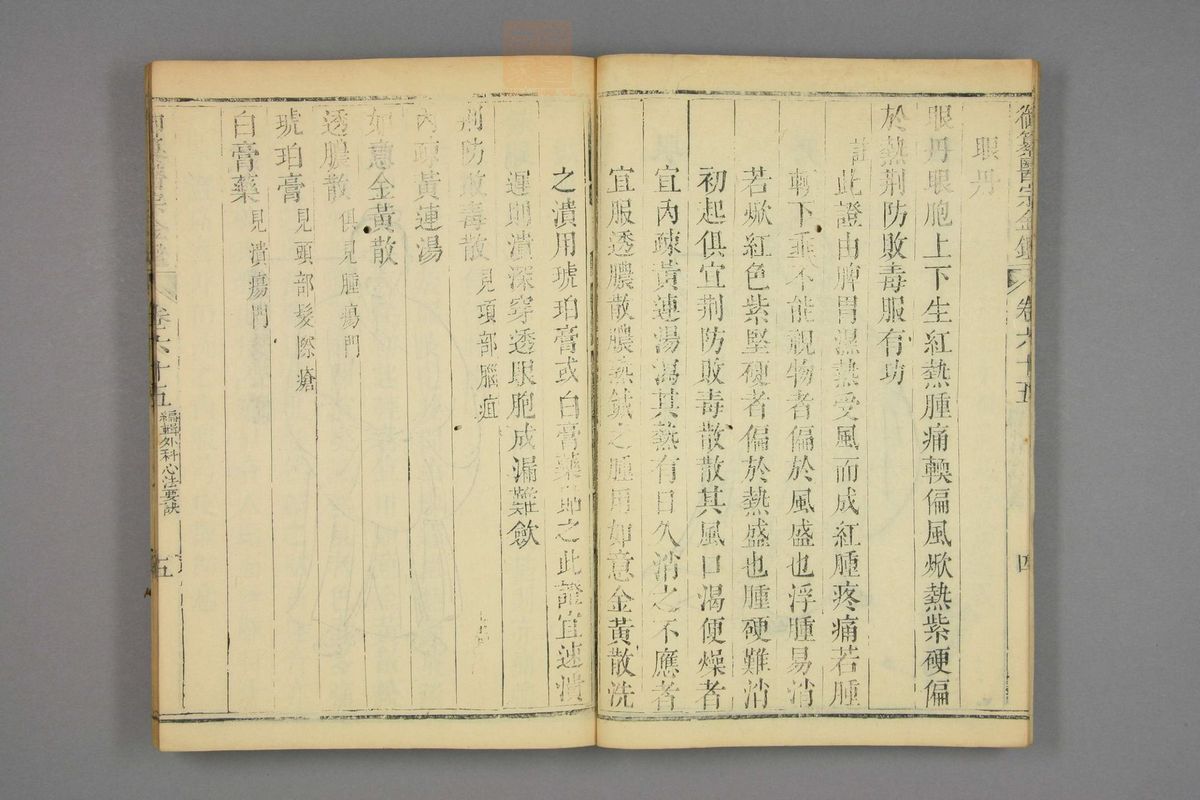 御纂醫宗金鑑 卷六十五 四
眼丹
眼丹眼胞上下生紅熱腫痛輭偏風焮熱紫硬偏
於熱荆防敗毒服有功
註此證由脾胃濕熱受風而成紅腫疼痛若腫
輭下垂不能覩物者偏於風盛也浮腫易消
若焮紅色紫堅硬者偏於熱盛也腫硬難消
初起俱宜荆防敗毒散散其風口渴便燥者
宜內疎黃連湯瀉其熱有日久消之不應者
宜服透膿散膿熟鍼之腫用如意金黃散洗
之潰用琥珀膏或白膏藥貼之此證宜速潰
遲則潰深穿透眼胞成漏難歛
荆防敗毒散 見項部腦疽
內疎黃連湯
如意金黃散
透膿散 俱見腫瘍門
琥珀膏 見頭部髮際瘡
白膏藥 見潰瘍門
御纂醫宗金鑑 卷六十五 編輯外科心法要訣 五